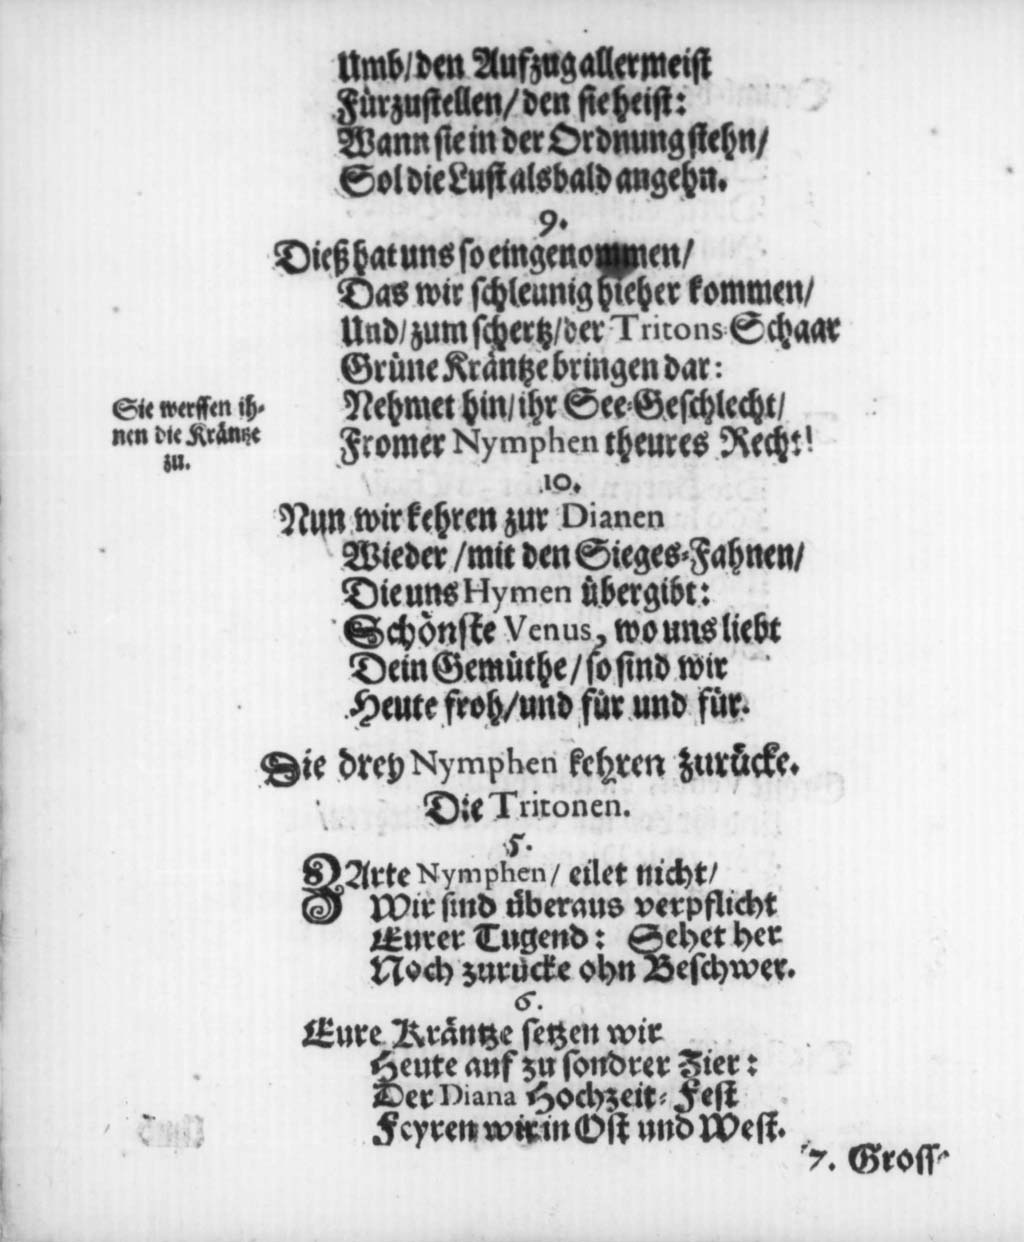 Umb/den Aufzug allermeist
Fürzustellen/den sie heist:
Wann sie in der Ordnung stehn/
Sol die Lust alsbald angehn.
9.
Dieß hat uns so eingenommen/
Das wir schleunig hieher kommen/
Und/zum schertz/der Tritons-Schaar
Grüne Kräntze bringen dar:
Sie werffen ih-
nen die Kräntze
zu.
Nehmet hin/ihr See-Geschlecht/
Fromer Nymphen theures Recht!
10.
Nun wir kehren zur Dianen
Wieder/mit den Sieges-Fahnen/
Die uns Hymen übergibt:
Schönste Venus, wo uns liebt
Dein Gemüthe/so sind wir
Heute froh/und für und für.
Die drey Nymphen kehren zurücke.
Die Tritonen.
5.
ZArte Nymphen/ eilet nicht/
Wir sind überaus verpflicht
Eurer Tugend: Sehet her
Noch zurücke ohn Beschwer.
6.
Eure Kräntze setzen wir
Heute auf zu sondrer Zier:
Der Diana Hochzeit-Fest
Feyren wir in Ost und West.
7. Gross-